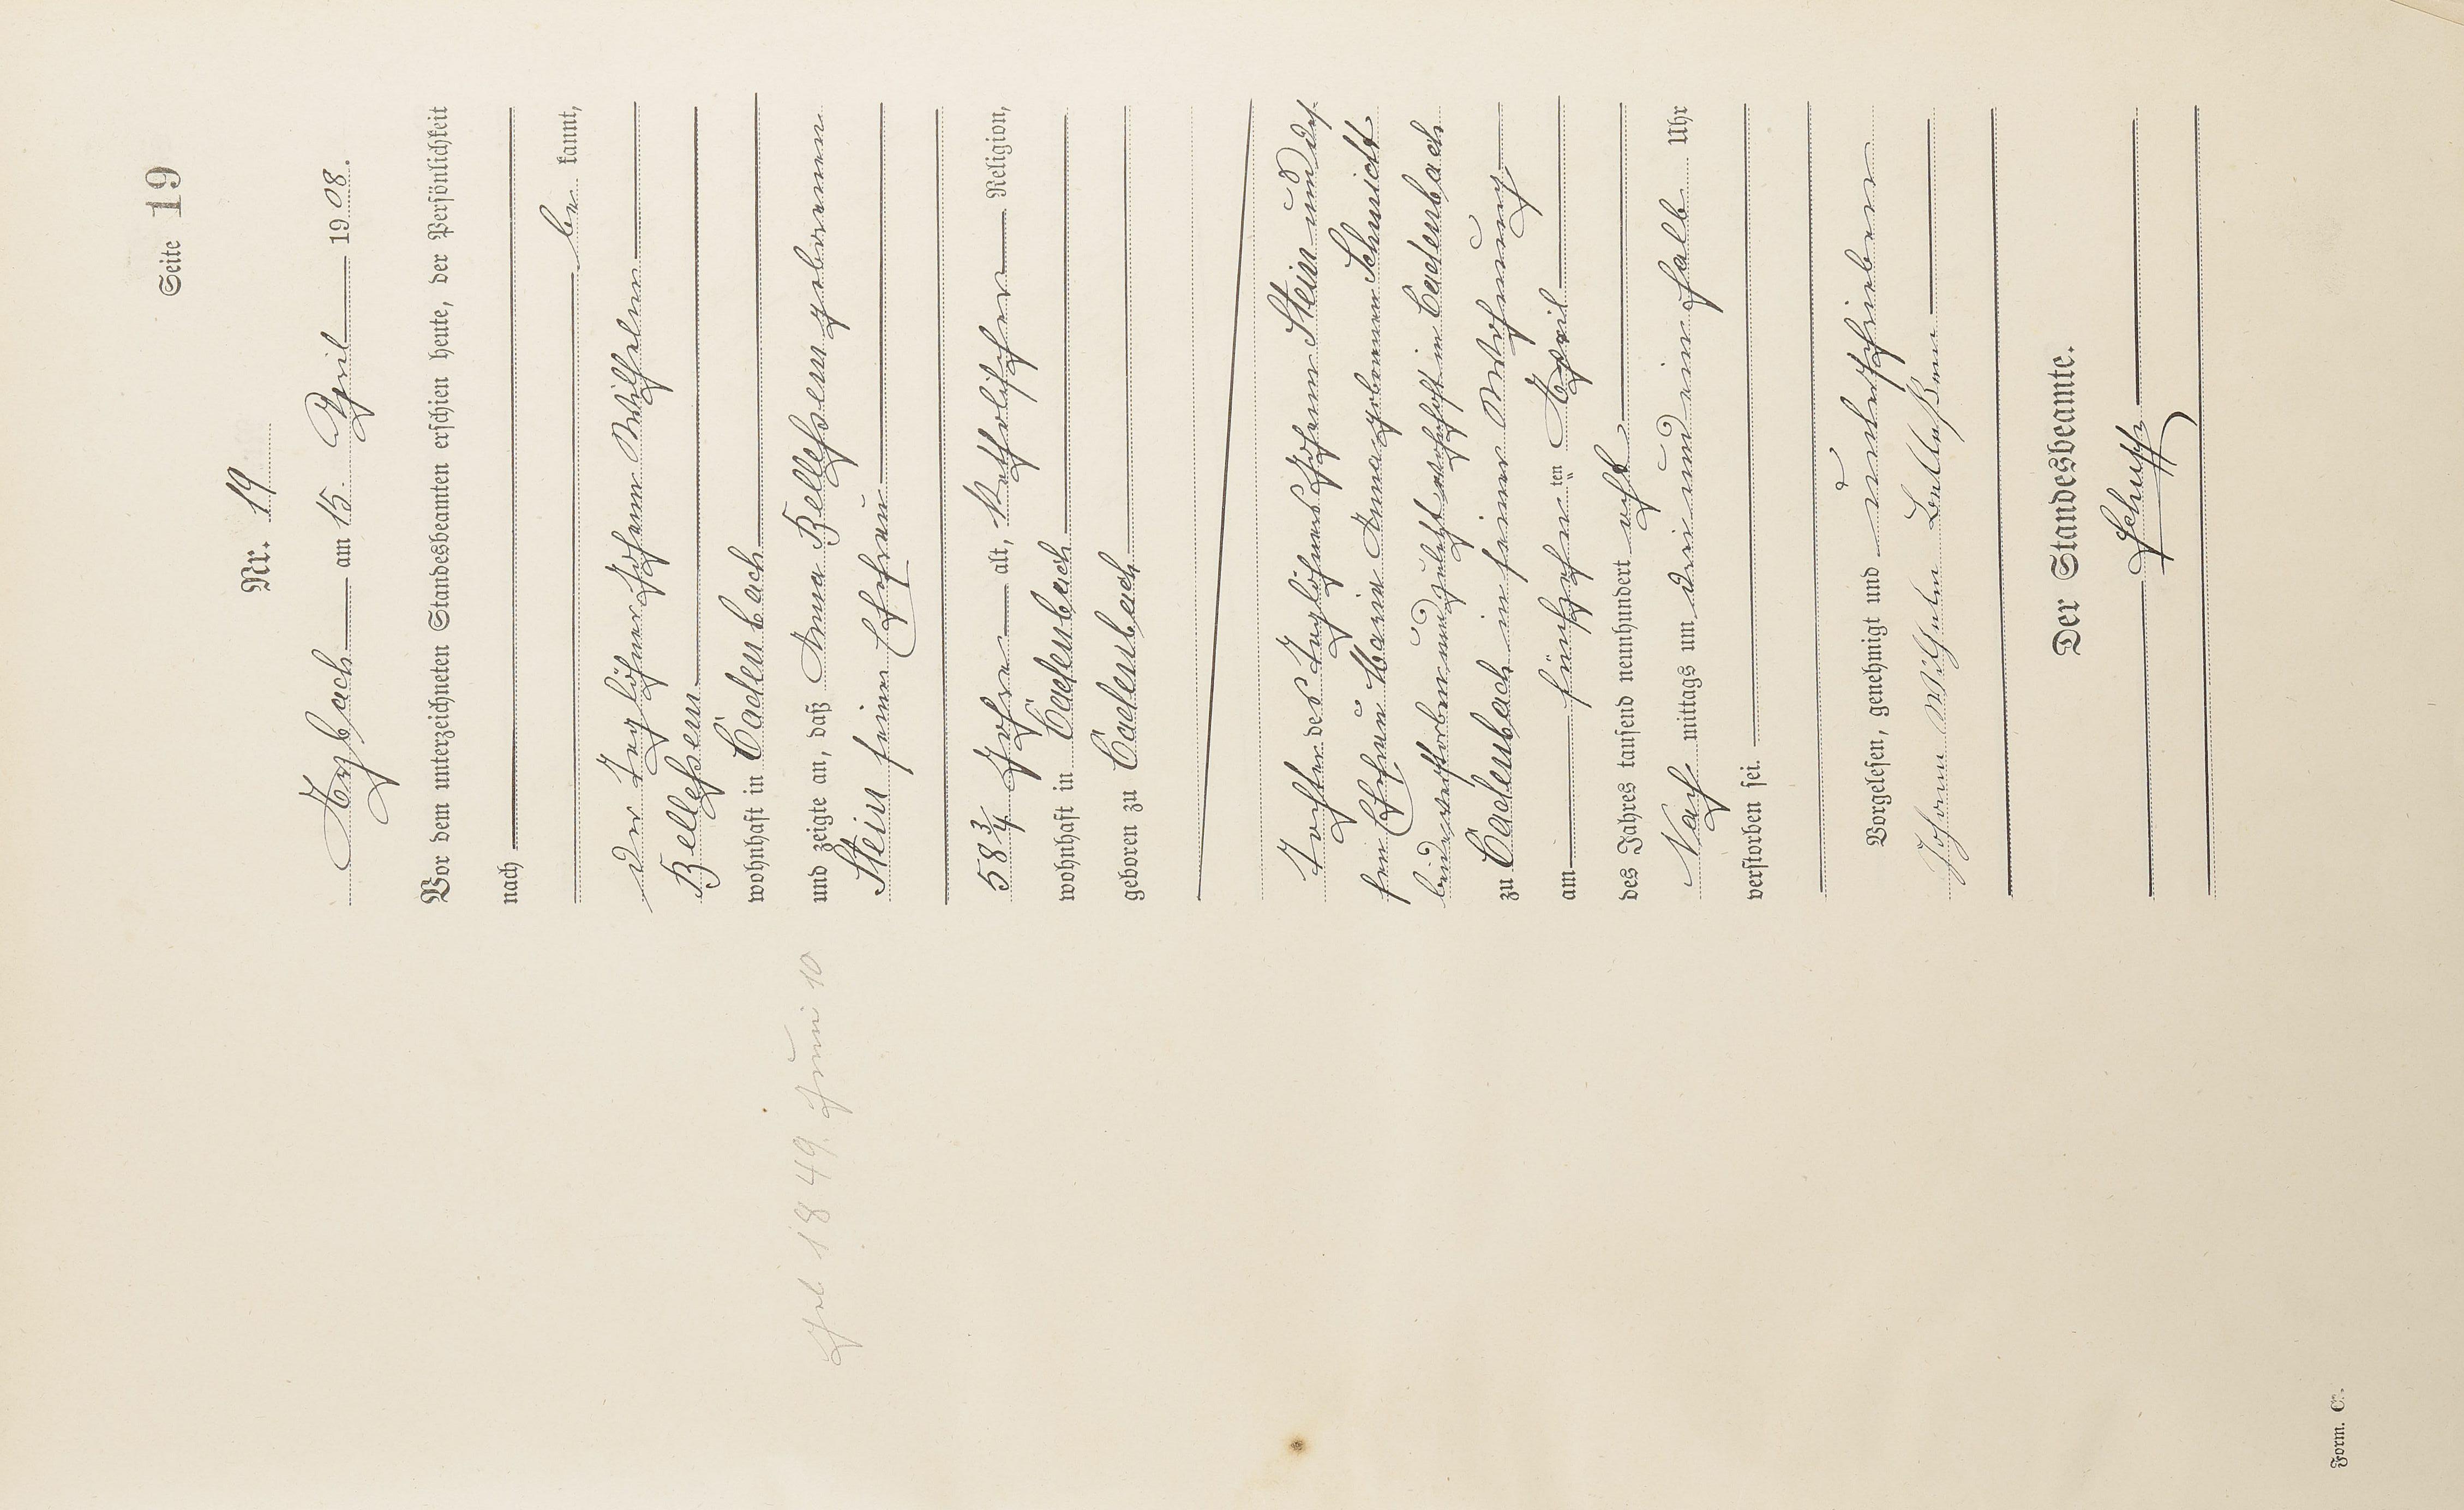 Seite 19
Nr. 19
Arzbach am 15. April 1908.
Vor dem unterzeichneten Standesbeamten erschien heute, der Persönlichkeit
nach
be kannt,
der Taglöhner Johann Wilhelm
Bellehsem
wohnhaft in Cadenbach
und zeigte an, daß Anna geborenen
Stein seine Ehefrau
58 3/4 Jahre alt, Katholischer Religion,
wohnhaft in Cadenbach
geboren zu Cadenbach
Tochter des Taglöhners Johann Stein und des
sen Ehefrau Maria Anna geborenen Schmidt
beide verstorben und zuletzt wohnhaft in Cadenbach
zu Cadenbach in seiner Wohnung
am fünfzehnten April
des Jahres tausend neunhundert acht
Nach mittags um drei und ein halb Uhr
verstorben sei.
Vorgelesen, genehmigt und unterschrieben
Johann Wilhelm
Der Standesbeamte.
Gel. 1849. Juni 10
Form. C.